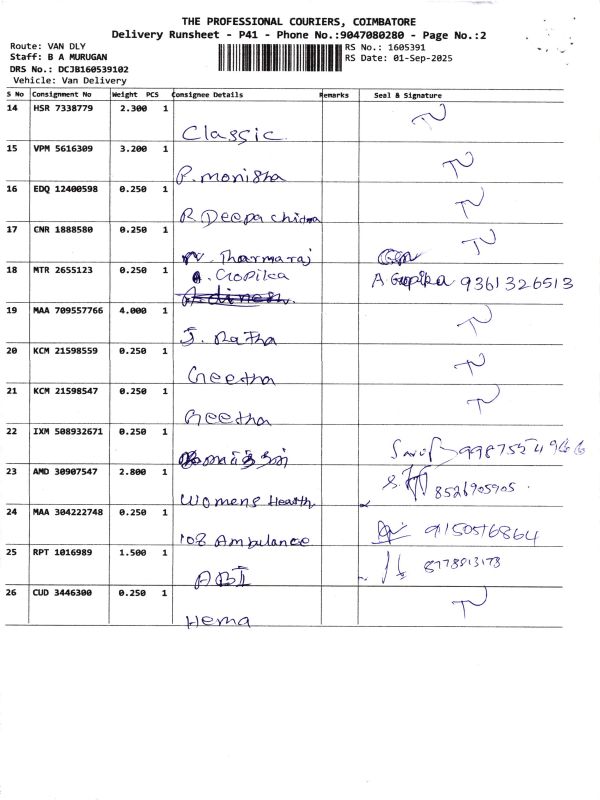 THE PROFESSIONAL COURIERS, COIMBATORE
Delivery Runsheet - P41 - Phone No.:9047080280 - Page No.:2
Route: VAN DLY
RS No.: 1605391
Staff: B A MURUGAN
RS Date: 01-Sep-2025
DRS No.: DCJB160539102
Vehicle: Van Delivery
S No Consignment No Weight PCS Consignee Details Remarks Seal & Signature
14 HSR 7338779 2.300 1
Classic
15 VPM 5616309 3.200 1
P. monisha
16 EDQ 12400598 0.250 1
R Deepa chitra
17 CNR 1888580 0.250 1
Tharmaraj
18 MTR 2655123 0.250 1
A. Gopika
A Gopika 9361326513
19 MAA 709557766 4.000 1
J. Ratha
20 KCM 21598559 0.250 1
Geetha
21 KCM 21598547 0.250 1
Geetha
22 IXM 508932671 0.250 1
23 AMD 30907547 2.800 1
Womens Health
8526905905
24 MAA 304222748 0.250 1
108 Ambulance
9150516864
25 RPT 1016989 1.500 1
ABI
26 CUD 3446300 0.250 1
Hema